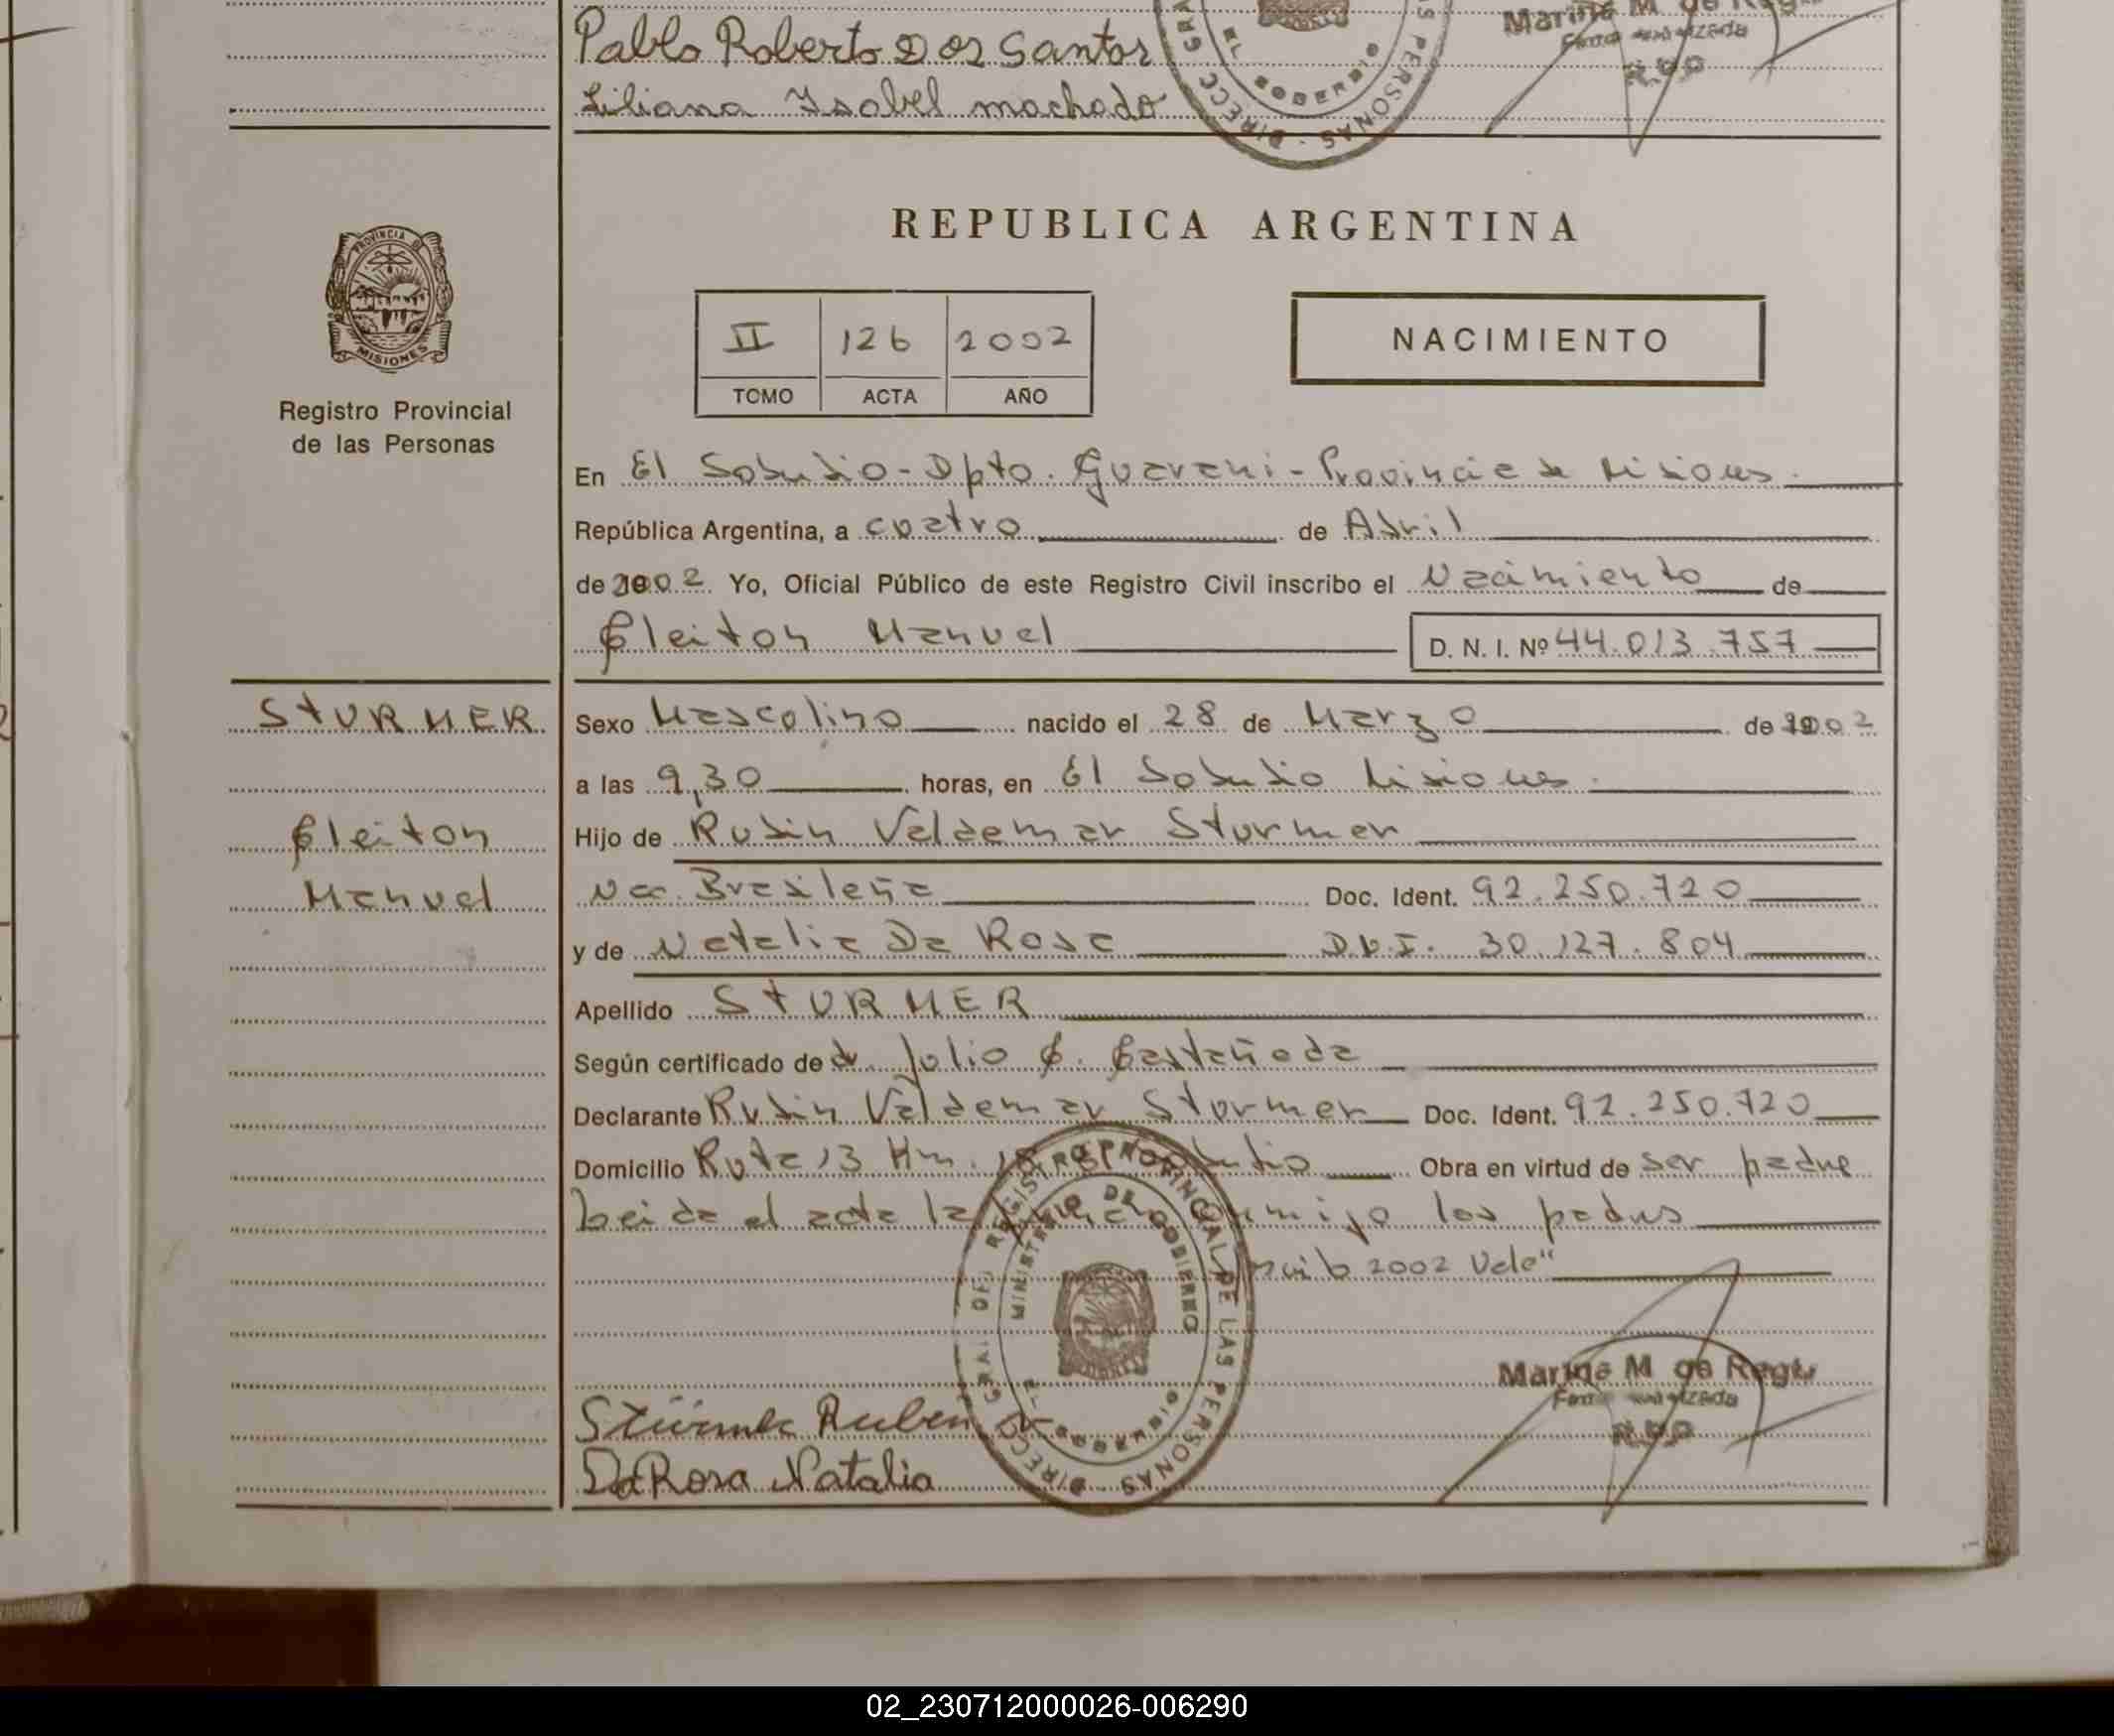 Pablo Roberto Dos Santos
Liliana Isabel machado
Marina M de Regu
DIRECC GRAL PERSONAS
EL SOBERBIO
REPUBLICA ARGENTINA
PROVINCIA DE MISIONES
II 126 2002
TOMO ACTA AÑO
NACIMIENTO
Registro Provincial
de las Personas
En El Soberbio - Dpto. Guarani - Provincia de Misiones.
República Argentina, a cuatro de Abril
de 2002 Yo, Oficial Público de este Registro Civil inscribo el Nacimiento de
Cleiton Manuel D. N. I. Nº 44.013.757
STURMER
Sexo Masculino nacido el 28 de Marzo de 2002
a las 9,30 horas, en El Soberbio Misiones.
Cleiton
Manuel
Hijo de Rubin Valdemar Sturmer
Nac. Brasileña Doc. Ident. 92.250.720
y de Natalia Da Rosa D.N.I. 30.127.804
Apellido STURMER
Según certificado de dr. Julio C. Castañeda
Declarante Rubin Valdemar Sturmer Doc. Ident. 92.250.720
Domicilio Ruta 13 Km. Obra en virtud de ser padre
Leida el acta la los padres
2002 Vale"
DIRECC GRAL DEL REGISTRO PROVINCIAL DE LAS PERSONAS
MINISTERIO DE GOBIERNO
EL SOBERBIO
Marina M de Regu
Stürmer Ruben
Da Rosa Natalia
02_230712000026-006290